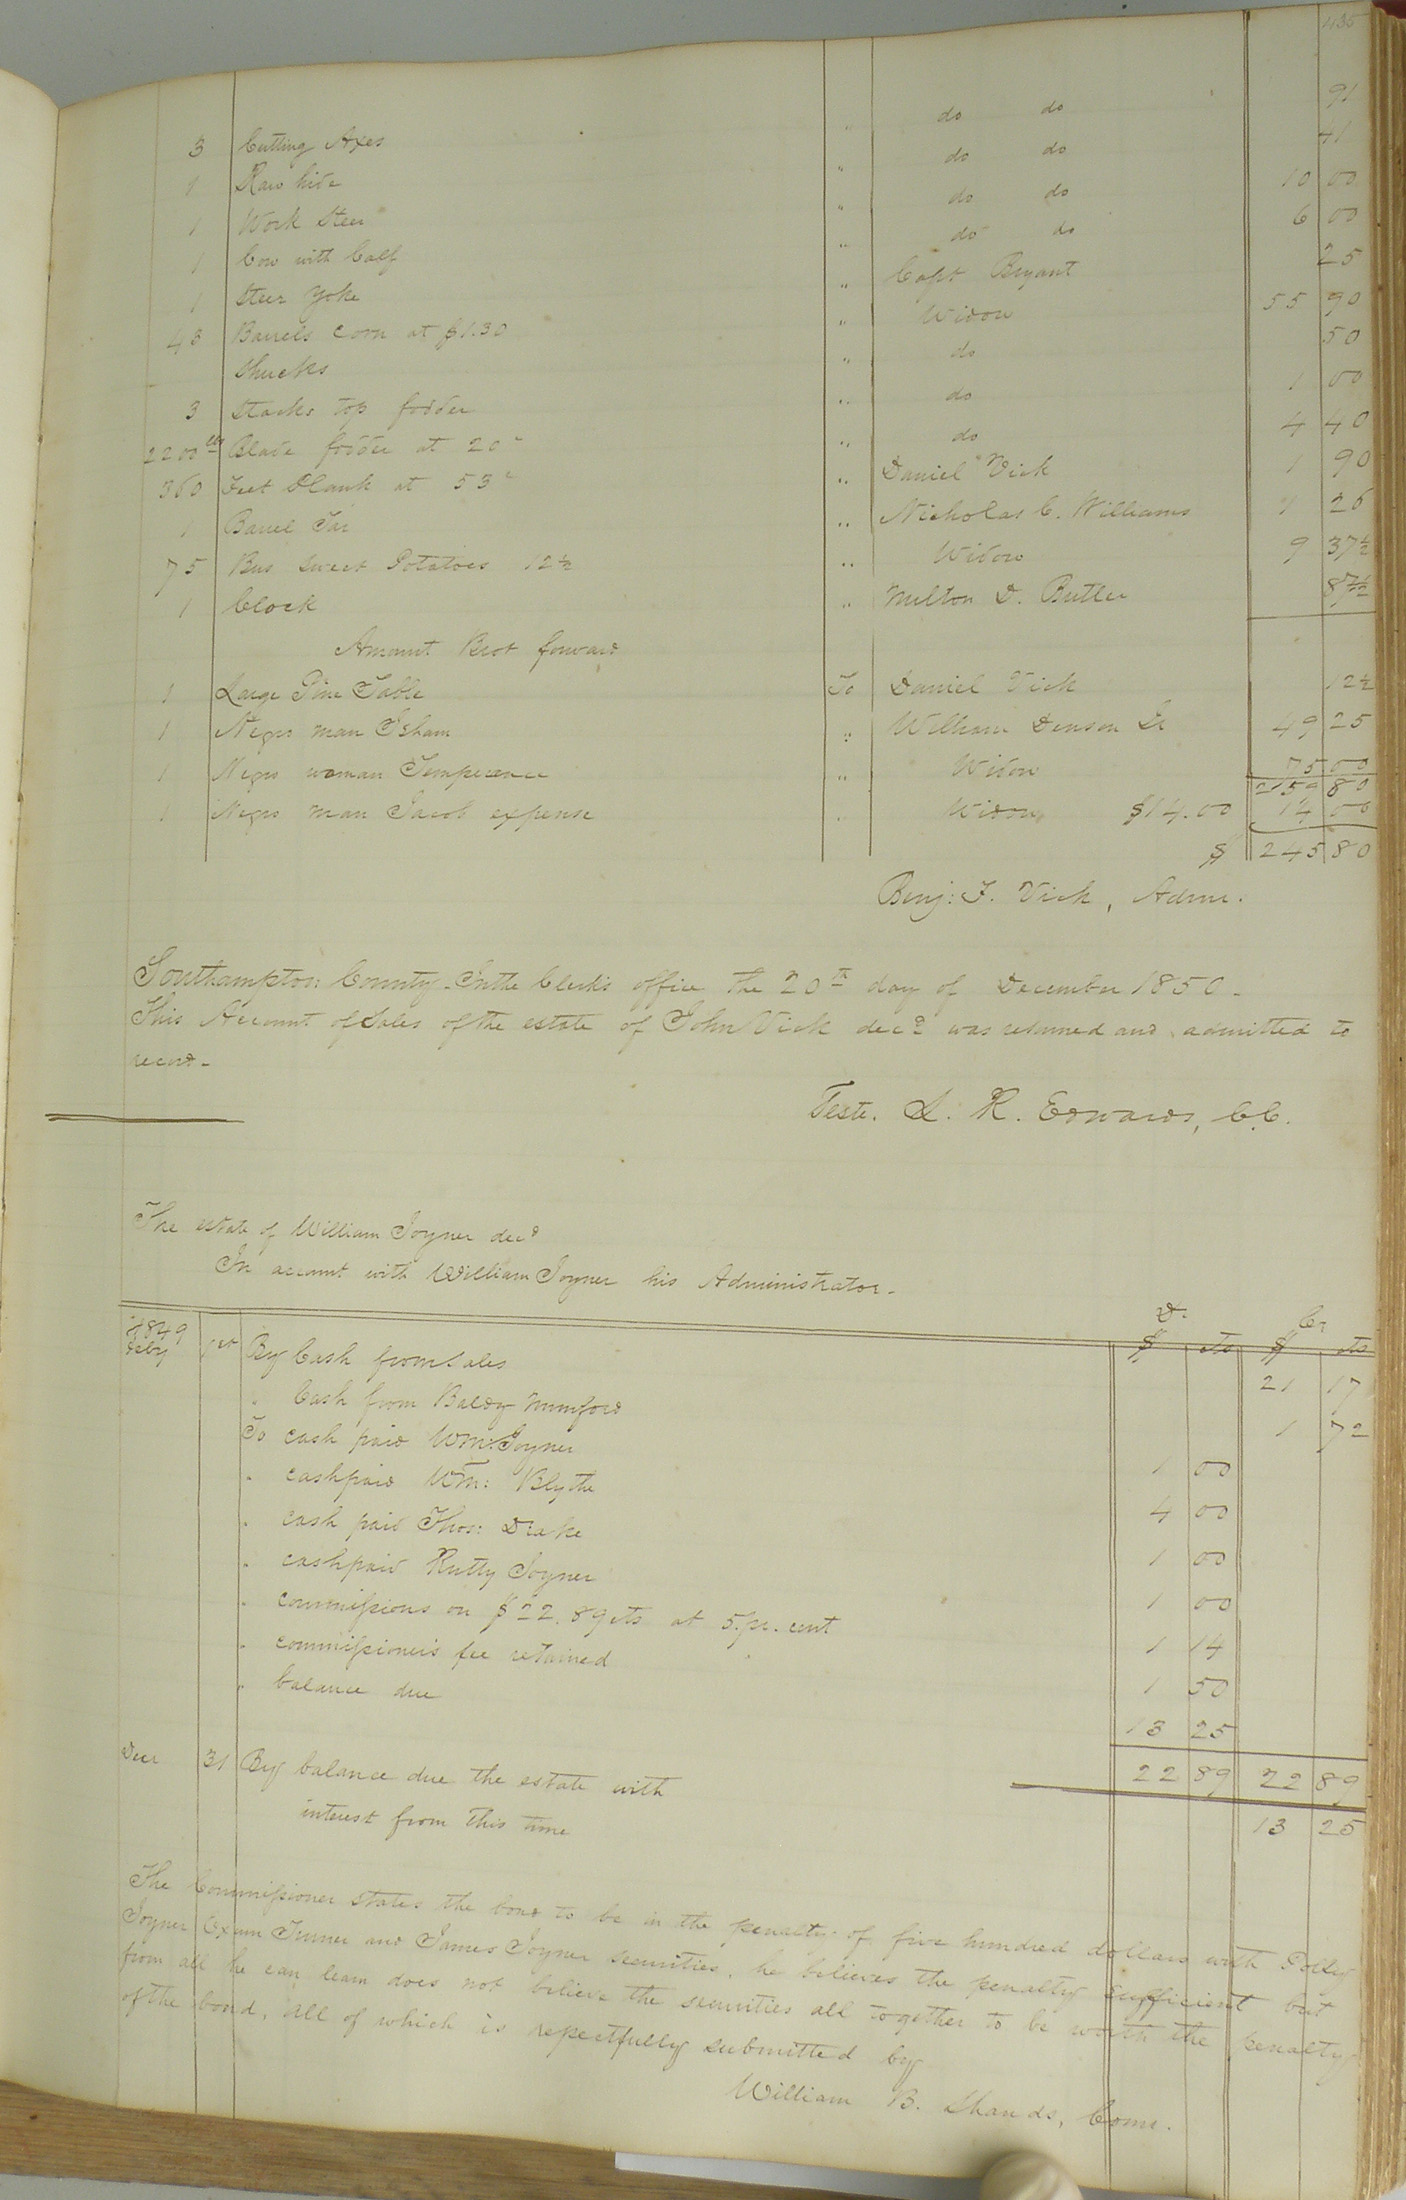 435
3 Cutting Axes " do do 91
1 Raw hide " do do 41
1 Work Steer " do do 10 00
1 Cow with Calf " do do 6 00
1 Steer Yoke " Capt Bryant 25
43 Barrels Corn at $1.30 " Widow 55 90
Shucks " do 50
3 Stacks top fodder " do 1 00
2200 lb Blade fodder at 20c " do 4 40
360 Feet Plank at 53c " Daniel Vick 1 90
1 Barrel Tar " Nicholas C. Williams 1 26
75 Bus Sweet Potatoes 12½ " Widow 9 37½
1 Clock " Milton D. Butler 87½
Amount Brot forward
1 Large Pine Table To Daniel Vick 12½
1 Negro man Isham " William Denson Sr 49 25
1 Negro woman Temperance " Widow 75 00
2159 80
1 Negro man Jacob expense " Widow $14.00 14 00
$ 245 80
Benj: F. Vick, Admr.
Southampton County. In the Clerk's office the 20th day of December 1850.
This Account of Sales of the estate of John Vick decd was returned and admitted to
record.
Teste. L. R. Edwards, C.C.
The estate of William Joyner decd
In account with William Joyner his Administrator.
Dr Cr
$ cts $ cts
1849
Feby 1st By Cash from Sales 21 17
" Cash from Baldy Mumford 1 72
To cash paid Wm: Joyner 1 00
" cash paid Wm: Blythe 4 00
" cash paid Thos: Drake 1 00
" cash paid Rutty Joyner 1 00
" commissions on $22.89 cts at 5.pr.cent 1 14
" commissioner's fee retained 1 50
" balance due 13 25
22 89 22 89
Decr 31 By balance due the estate with
interest from this time 13 25
The Commissioner states the bond to be in the penalty of five hundred dollars with Polly
Joyner Exum Turner and James Joyner securities, he believes the penalty sufficient but
from all he can learn does not believe the securities all together to be worth the penalty
of the bond, all of which is respectfully submitted by
William B. Shands, Comr.